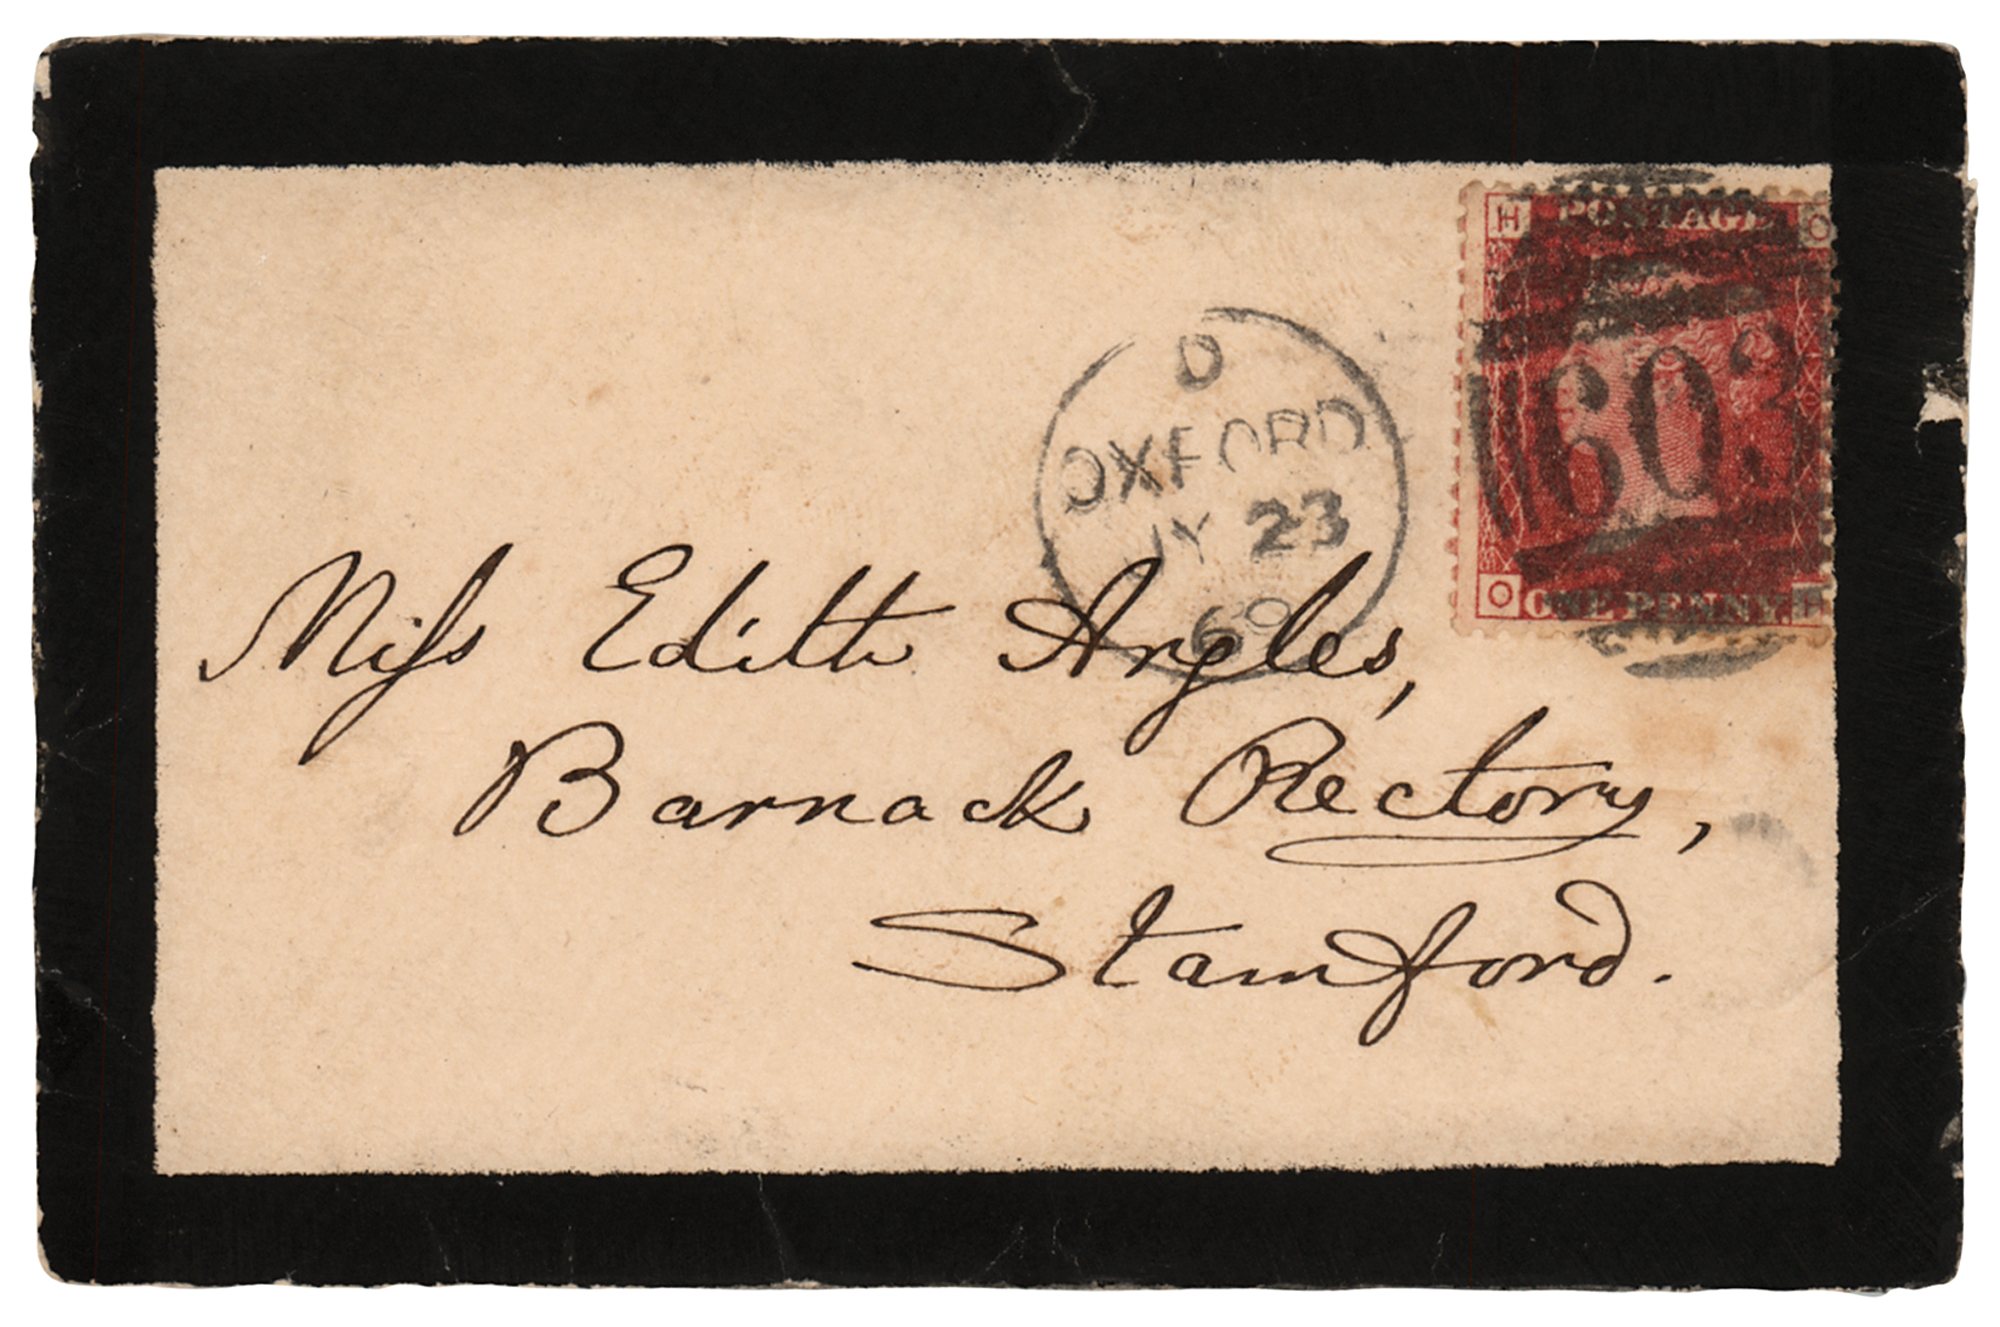 H POSTAGE O
603
O ONE PENNY. H
D
OXFORD
JY 23
69
Miss Edith Argles,
Barnack Rectory,
Stamford.